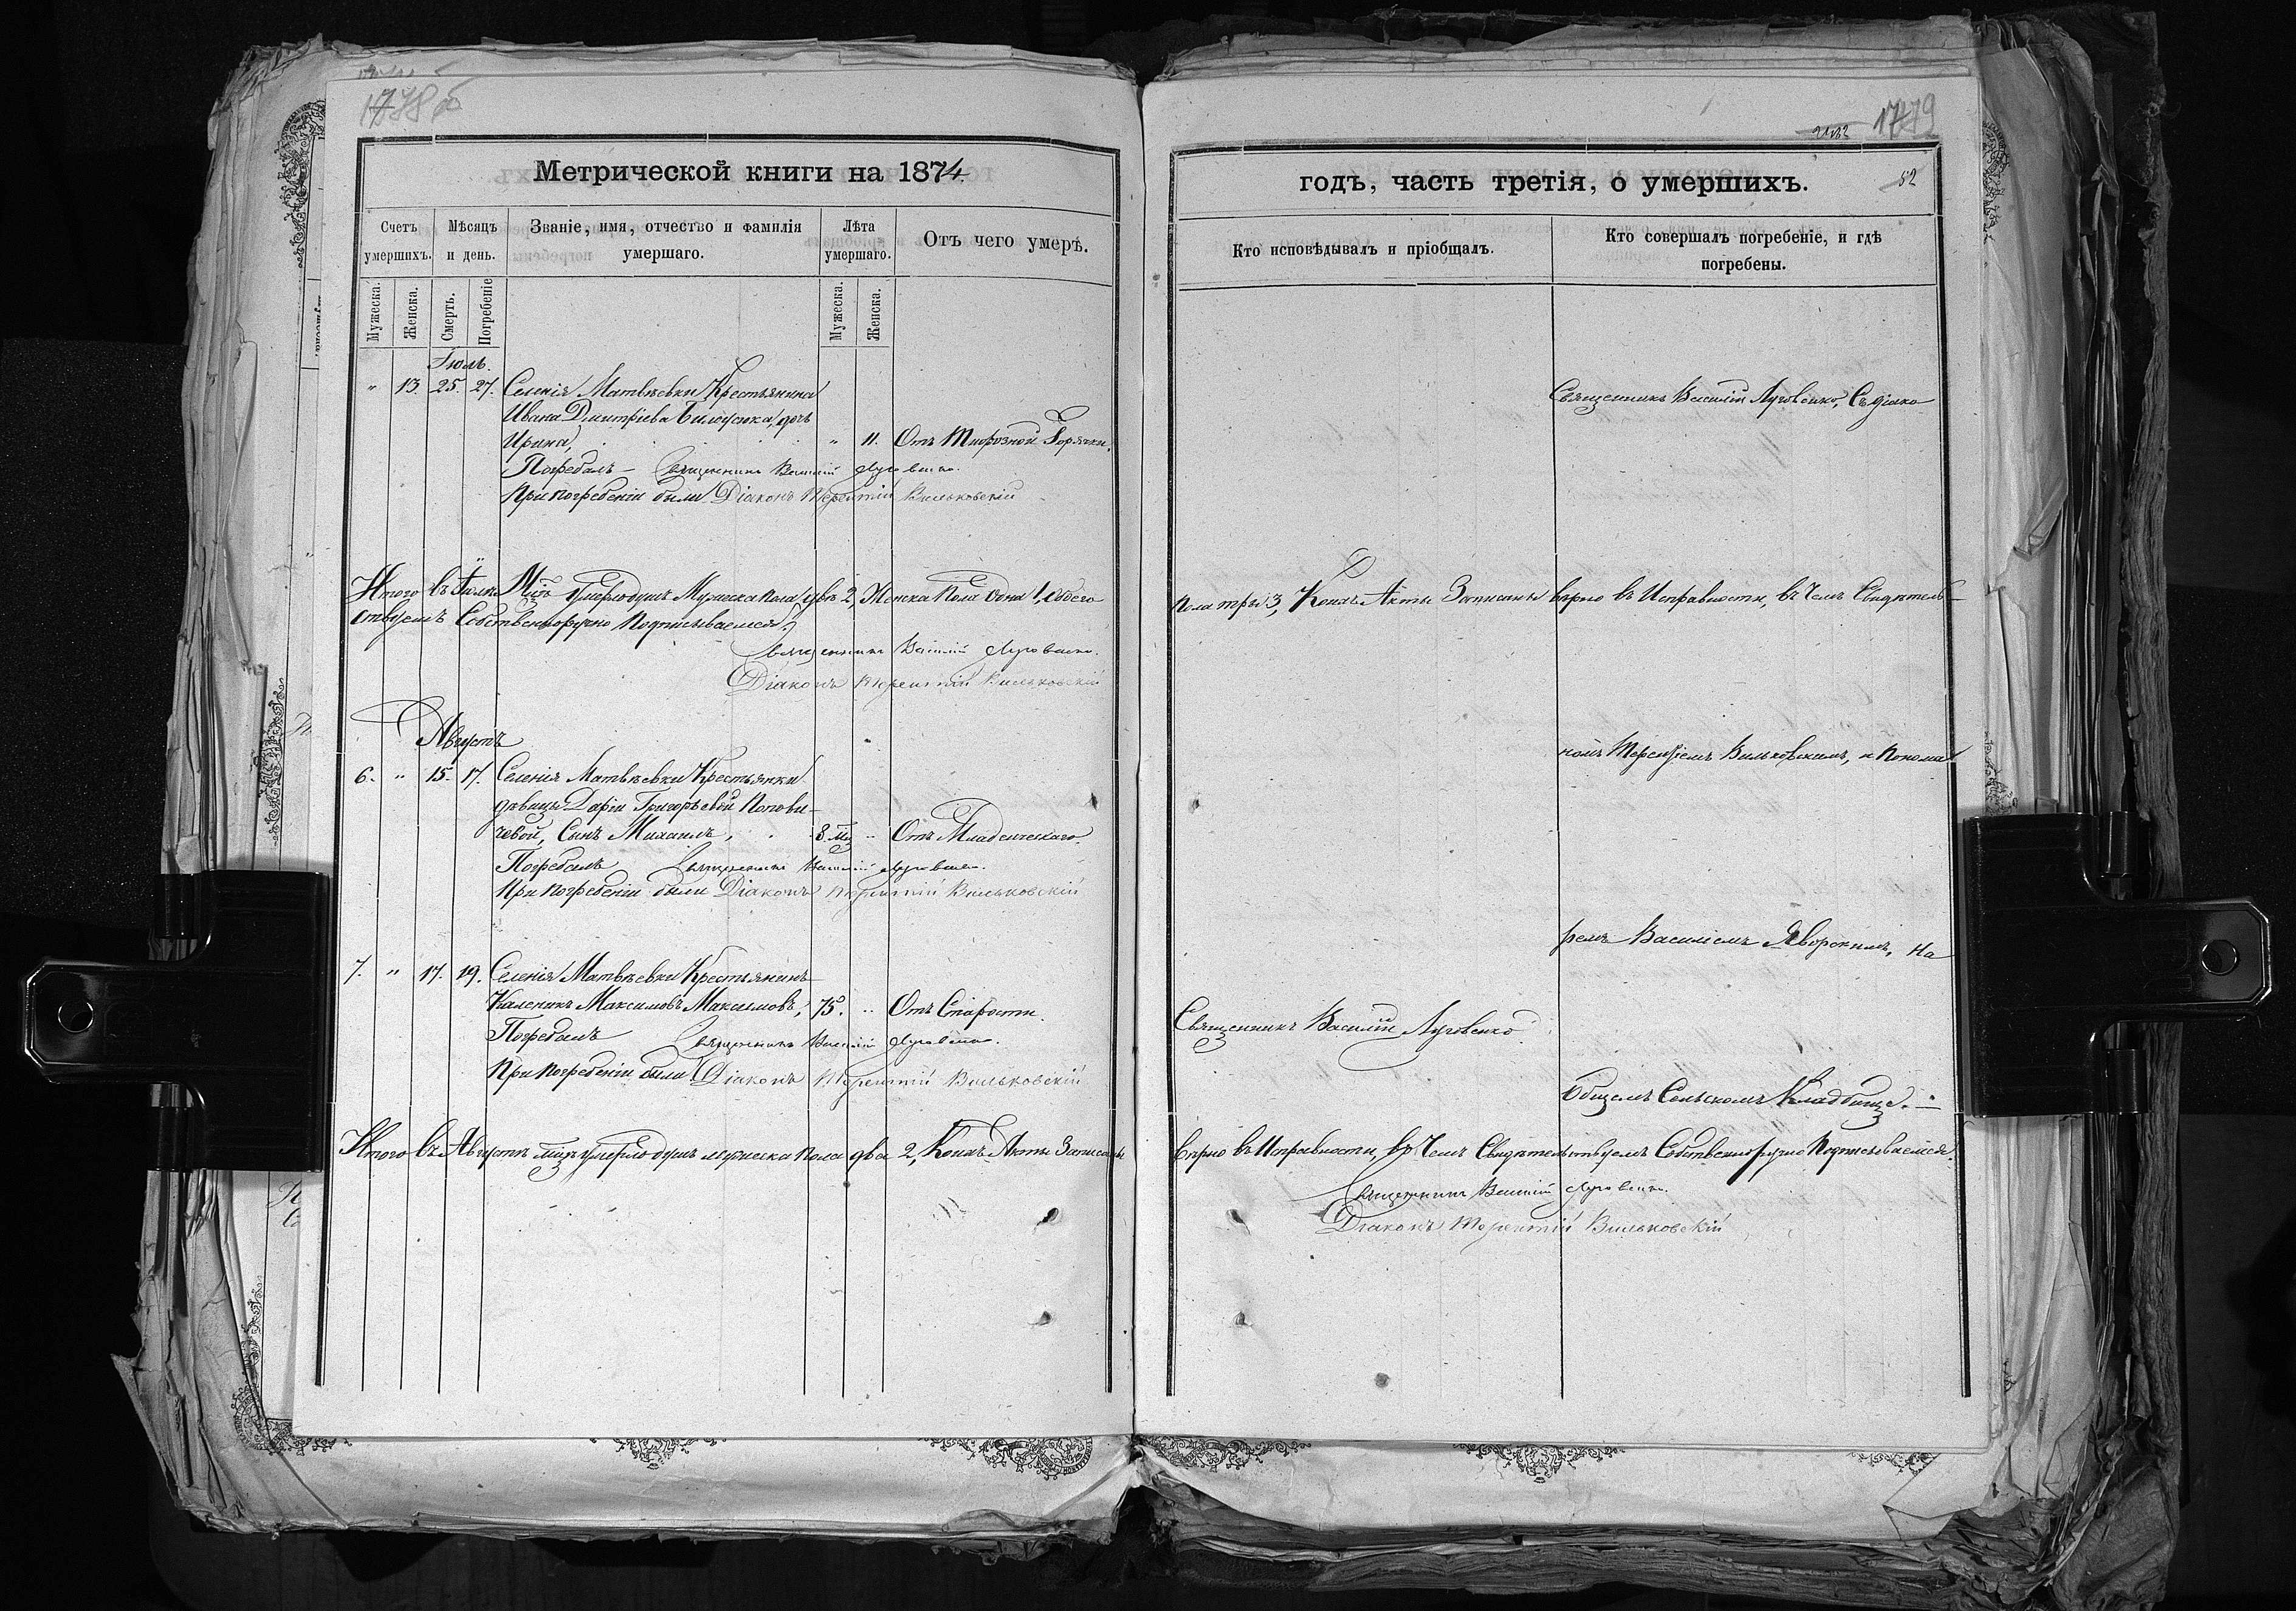 1778 об
Метрической книги на 1874
Счетъ умершихъ.
Мѣсяцъ и день.
Званіе, имя, отчество и фамилія умершаго.
Лѣта умершаго.
Отъ чего умеръ.
Мужеска.
Женска.
Смерть.
Погребеніе
Мужеска.
Женска.
Іюль.
" 13. 25. 27. Селенія Матвѣевки Крестьянина
Ивана Дмитріева дочь
Ирина, " 11. Отъ Горячки.
Погребалъ – Священникъ Василій Луговенко.
При погребеніи были Діаконъ Терентій Вильковскій
Итого въ Іюлѣ Мцѣ Умерло душъ Мужеска пола двѣ 2, Женска пола одна 1, Обоего
ствуемъ Собственноручно Подписываемся.
Священникъ Василій Луговенко.
Діаконъ Терентій Вильковскій
Августъ
6. " 15. 17. Селенія Матвѣевки Крестьянки
дѣвицы Даріи Григорьевой Попови-
чевой, Сынъ Михаилъ, 8. мц " Отъ Младенческаго.
Погребалъ Священникъ Василій Луговенко.
При погребеніи были Діаконъ Терентій Вильковскій
7. " 17. 19. Селенія Матвѣевки Крестьянинъ
Каленикъ Максимовъ Максимовъ, 75. " Отъ Старости.
Погребалъ Священникъ Василій Луговенко.
При погребеніи были Діаконъ Терентій Вильковскій
Итого въ Августѣ мцѣ умерло душъ мужеска пола два 2, Коихъ Акты Записаны
1779
52
годъ, часть третія, о умершихъ.
Кто исповѣдывалъ и пріобщалъ.
Кто совершалъ погребеніе, и гдѣ погребены.
Священникъ Василій Луговенко, Съ діако-
пола три 3, Коихъ Акты Записаны вѣрно въ Исправности, въ Чемъ Свидѣтель-
номъ Терентіемъ Вильковскимъ, и Понома-
ремъ Василіемъ Яворскимъ, На
Священникъ Василій Луговенко
Общемъ Сельскомъ Кладбищѣ. –
вѣрно въ Исправности, въ Чемъ Свидѣтельствуемъ Собственноручно Подписываемся.
Священникъ Василій Луговенко.
Діаконъ Терентій Вильковскій